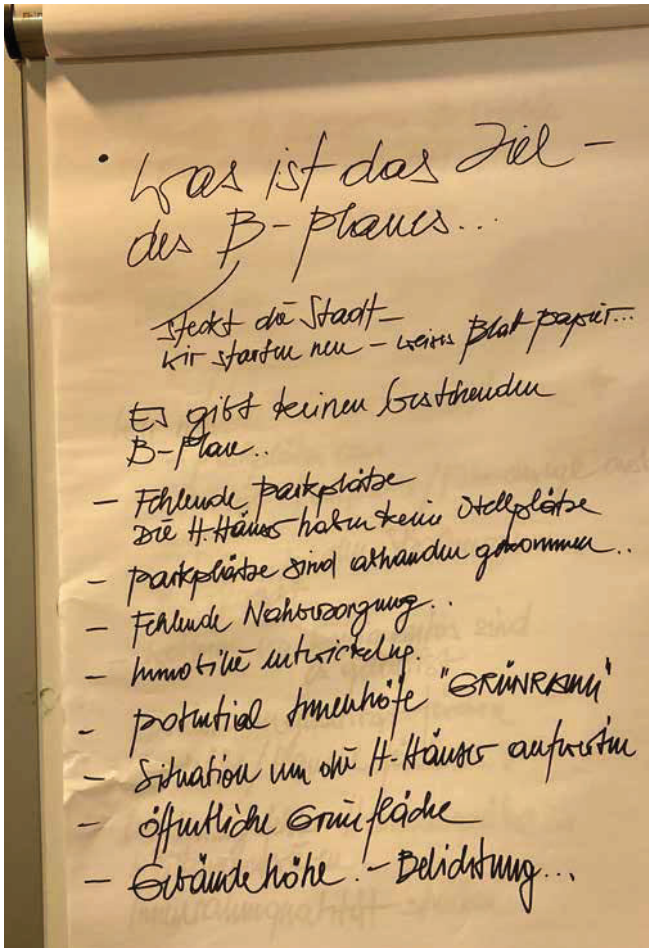 • Was ist das Ziel –
des B-Planes...
steckt die Stadt –
wir starten neu – weißes Blatt papier...
Es gibt keinen bestehenden
B-Plan..
– Fehlende Parkplätze
Die H-Häuser haben keine Stellplätze
– Parkplätze sind abhanden gekommen..
– Fehlende Nahversorgung..
– Immobilie entwickeln.
– Potential Innenhöfe "GRÜNRAUM"
– Situation um die H-Häuser aufwerten
– öffentliche Grünfläche
– Gebäudehöhe – Belichtung...